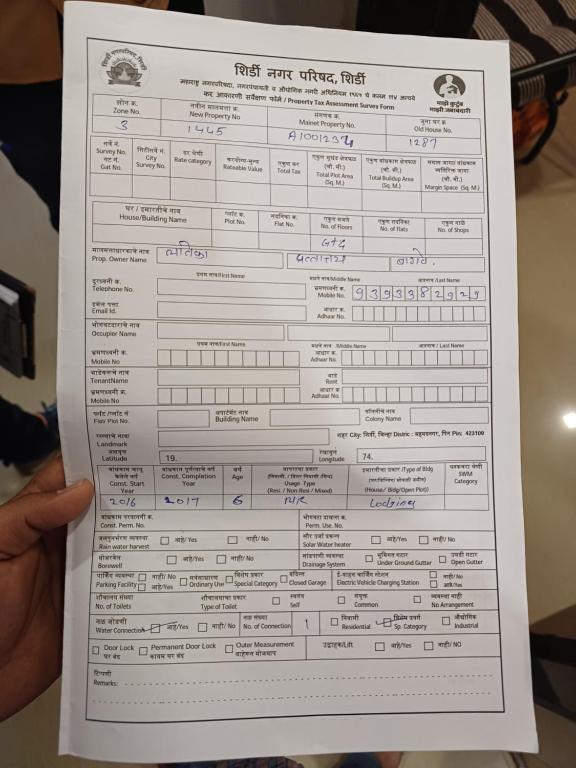 शिर्डी नगर परिषद, शिर्डी
महाराष्ट्र नगरपरिषदा, नगरपंचायती व औद्योगिक नगरी अधिनियम १९६५ चे कलम ११४ अन्वये
कर आकारणी सर्वेक्षण फॉर्म / Property Tax Assessment Survey Form
माझी कुटुंब
माझी जबाबदारी
झोन क्र. Zone No. 3
नवीन मालमत्ता क्र. New Property No 1445
संगणक क्र. Mainet Property No. A1001234
जुना घर क्र Old House No. 1287
सर्वे नं. Survey No. गट नं. Gat No.
सिटीसर्वे नं. City Survey No.
दर श्रेणी Rate category
करयोग्य-मुल्य Rateable Value
एकुण कर Total Tax
एकुण भुखंड क्षेत्रफळ (चौ. मी.) Total Plot Area (Sq. M.)
एकुण बांधकाम क्षेत्रफळ (चौ. मी.) Total Buildup Area (Sq. M.)
व्यतिरिक्त जागा (चौ. मी.) Margin Space (Sq. M.)
घर / इमारतीचे नाव House/Building Name
प्लॉट क्र. Plot No.
सदनिका क्र. Flat No.
एकुण मजले No. of Floors G+G
एकुण सदनिका No. of Flats
एकुण गाळे No. of Shops
मालमत्ताधारकाचे नाव Prop. Owner Name लतिका दत्तात्रय
प्रथम नाव/First Name मधले नाव/Middle Name आडनाव /Last Name
दुरध्वनी क्र. Telephone No.
भ्रमणध्वनी क्र. Mobile No. 9393382929
इमेल पत्ता Email Id.
आधार क्र. Adhaar No.
भोगवटदाराचे नाव Occupier Name
प्रथम नाव/First Name मधले नाव /Middle Name आडनाव / Last Name
भ्रमणध्वनी क्र. Mobile No
आधार क्र. Adhaar No.
भाडेकरूचे नाव TenantName
भाडे Rent
भ्रमणध्वनी क्र. Mobile No
आधार क्र Adhaar No.
फ्लॅट /प्लॉट नं Flat/ Plot No.
अपार्टमेंट नाव Building Name
कॉलनीचे नाव Colony Name
रस्त्याचे नाव/ Landmark
शहर City: शिर्डी, जिल्हा Distric : अहमदनगर, पिन Pin: 423109
अक्षवृत्त Latitude 19.
रेखावृत्त Longitude 74.
बांधकाम चालू केलेले वर्ष Const. Start Year 2016
बांधकाम पुर्णत्वाचे वर्ष Const. Completion Year 2017
वर्ष Age 6
वापराचा प्रकार Usage Type (Resi. / Non-Resi / Mixed) N/R
इमारतीचा प्रकार /Type of Bldg (House/ Bldg/Open Plot) Lodging
SWM Category
बांधकाम परवानगी क्र. Const. Perm. No.
भोगवटा दाखला क्र. Perm. Use. No.
जलपुनर्भरण व्यवस्था Rain water harvest आहे/Yes नाही/ No
सौर उर्जा प्रकल्प Solar Water heater आहे/Yes नाही/ No
बोअरवेल Borewell आहे/Yes नाही/ No
सांडपाणी व्यवस्था Drainage System भुमिगत गटार Under Ground Gutter उघडी गटार Open Gutter
पार्किंग व्यवस्था Parking Facility नाही/ No आहे/Yes सर्वसाधारण Ordinary Use विशेष प्रकार Special Category बंदिस्त Closed Garage
ई-वाहन चार्जिंग स्टेशन Electric Vehicle Charging Station नाही/ No आहे/Yes
शौचालय संख्या No. of Toilets
शौचालयाचा प्रकार Type of Toilet स्वतंत्र Self संयुक्त Common व्यवस्था नाही No Arrangement
नळ जोडणी Water Connection आहे/Yes नाही/ No
नळ संख्या No. of Connection 1
निवासी Residential विशेष प्रवर्ग Sp. Category औद्योगिक Industrial
Door Lock घर बंद Permanent Door Lock कायम घर बंद Outer Measurement बाहेरून मोजमाप
उद्वाहक/Lift आहे/Yes नाही/ NO
टिप्पणी
Remarks: